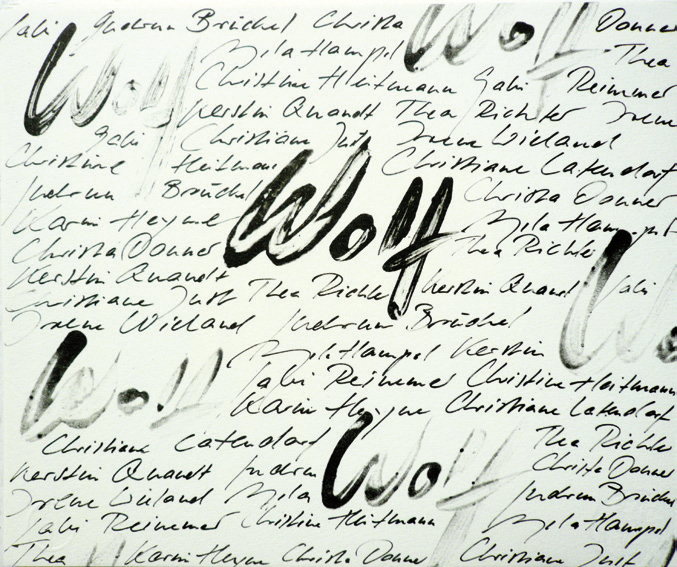 Gabi Gudrun Brüchel Christa Wolf Donner
Wolf Mila Hampel Thea
Christine Heitmann Gabi Reimmer
Kerstin Quandt Thea Richter Irene
Gabi Christiane Just Irene Wieland
Christine Heitmann Christiane Latendorf
Gudrun Brüchel Wolf Christa Donner
Karin Heyme Mila Hampel
Christa Donner Thea Richter
Kerstin Quandt Kerstin Quandt Gabi
Christiane Just Thea Richter
Irene Wieland Gudrun Brüchel
Wolf Mila Hampel Kerstin
Gabi Reimmer Christine Heitmann
Karin Heyme Christiane Latendorf
Christiane Latendorf Wolf Thea Richter
Kerstin Quandt Gudrun Christa Donner
Irene Wieland Mila Gudrun Brüchel
Gabi Reimmer Christine Heitmann Mila Hampel
Thea Karin Heyme Christa Donner Christiane Just